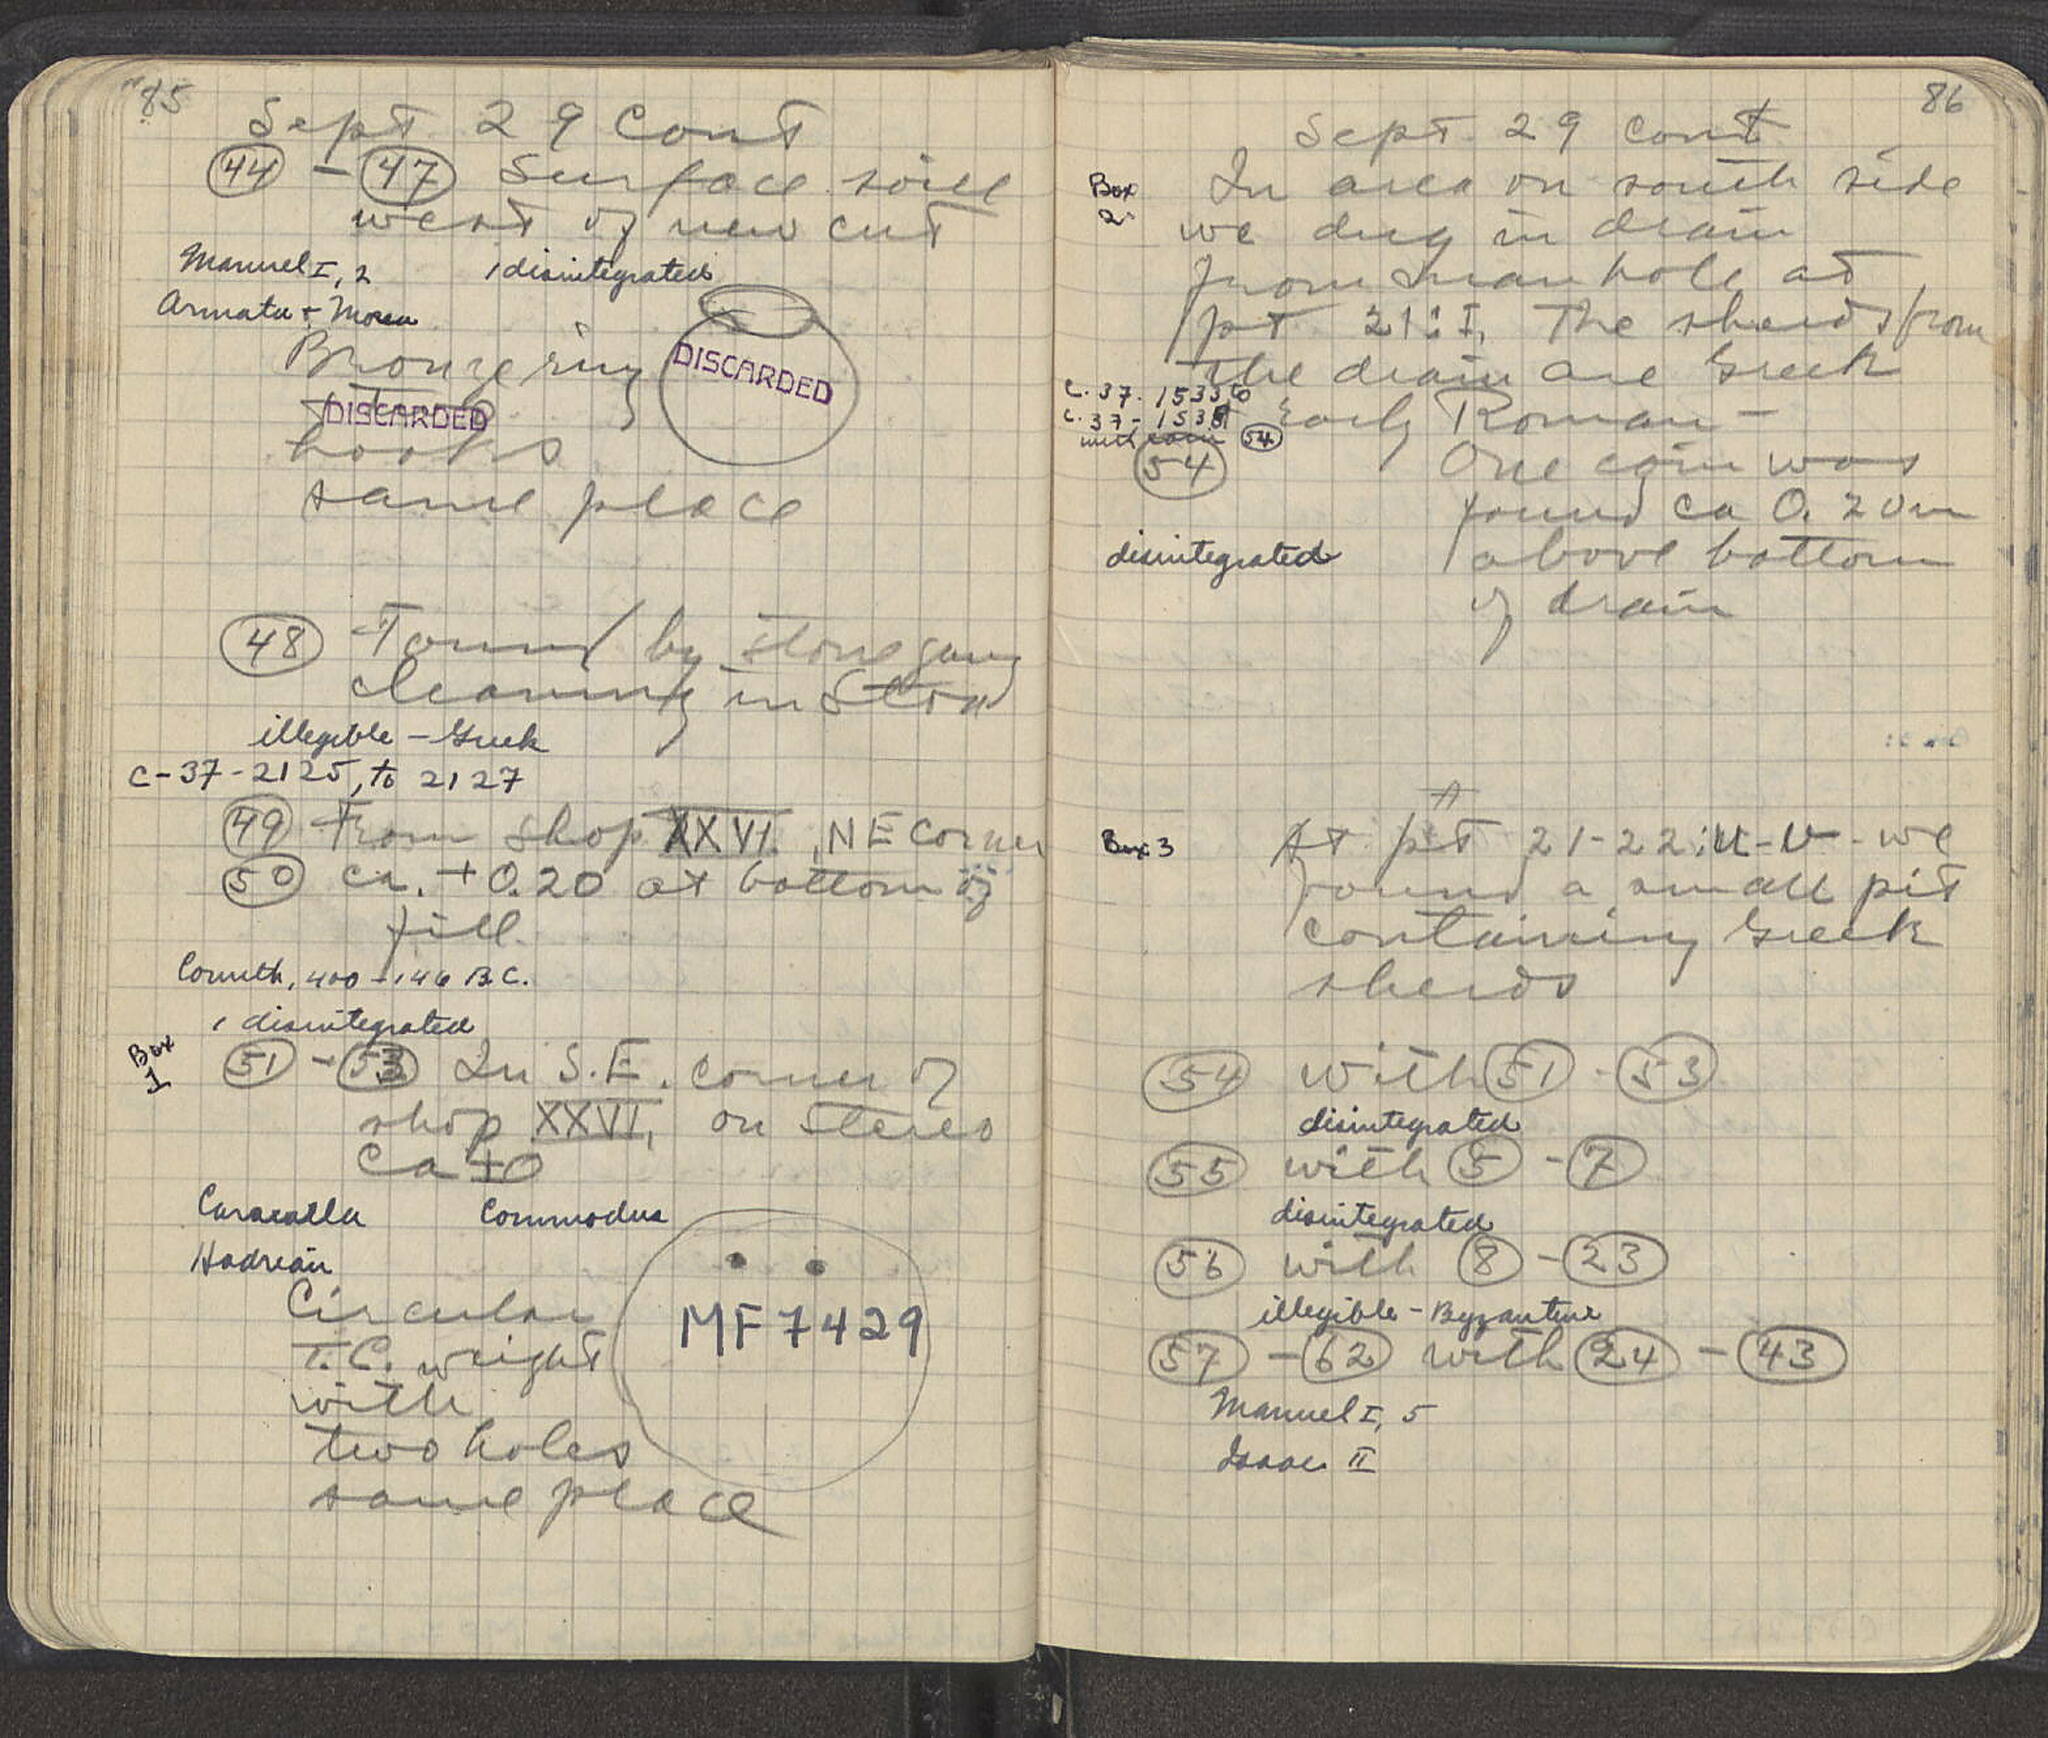 85
Sept 29 Cont
44 - 47 Surface soil
west of new cut
Manuel I, 2 1 disintegrated
Armata + Morea
Bronze ring
DISCARDED
DISCARDED
hooks
same place
48 Found by stone gang
cleaning in Stoa
illegible - Greek
C-37-2125, to 2127
49 From Shop XXVI, NE Corner
50 ca. +0.20 at bottom of
fill
Corinth, 400-146 B.C.
1 disintegrated
Box
1
51 - 53 In S.E. corner of
shop XXVI, on Stereo
Ca ±0
Caracalla Commodus
Hadrian
Circular
T.C. weight
with
two holes
same place
MF 7429
86
Sept. 29 cont
Box
2
In area on south side
we dug in drain
from manhole at
pt 21:I. The sherds from
the drain are Greek
C. 37-1533 to
C. 37-153
with coin 54
+ Early Roman -
54
One coin was
found ca 0.20m
above bottom
of drain
disintegrated
Box 3
At pt 21-22:U-V we
found a small pit
containing Greek
sherds
54 with 51 - 53
disintegrated
55 with 5 - 7
disintegrated
56 with 8 - 23
illegible - Byzantine
57 - 62 with 24 - 43
Manuel I, 5
Isaac II